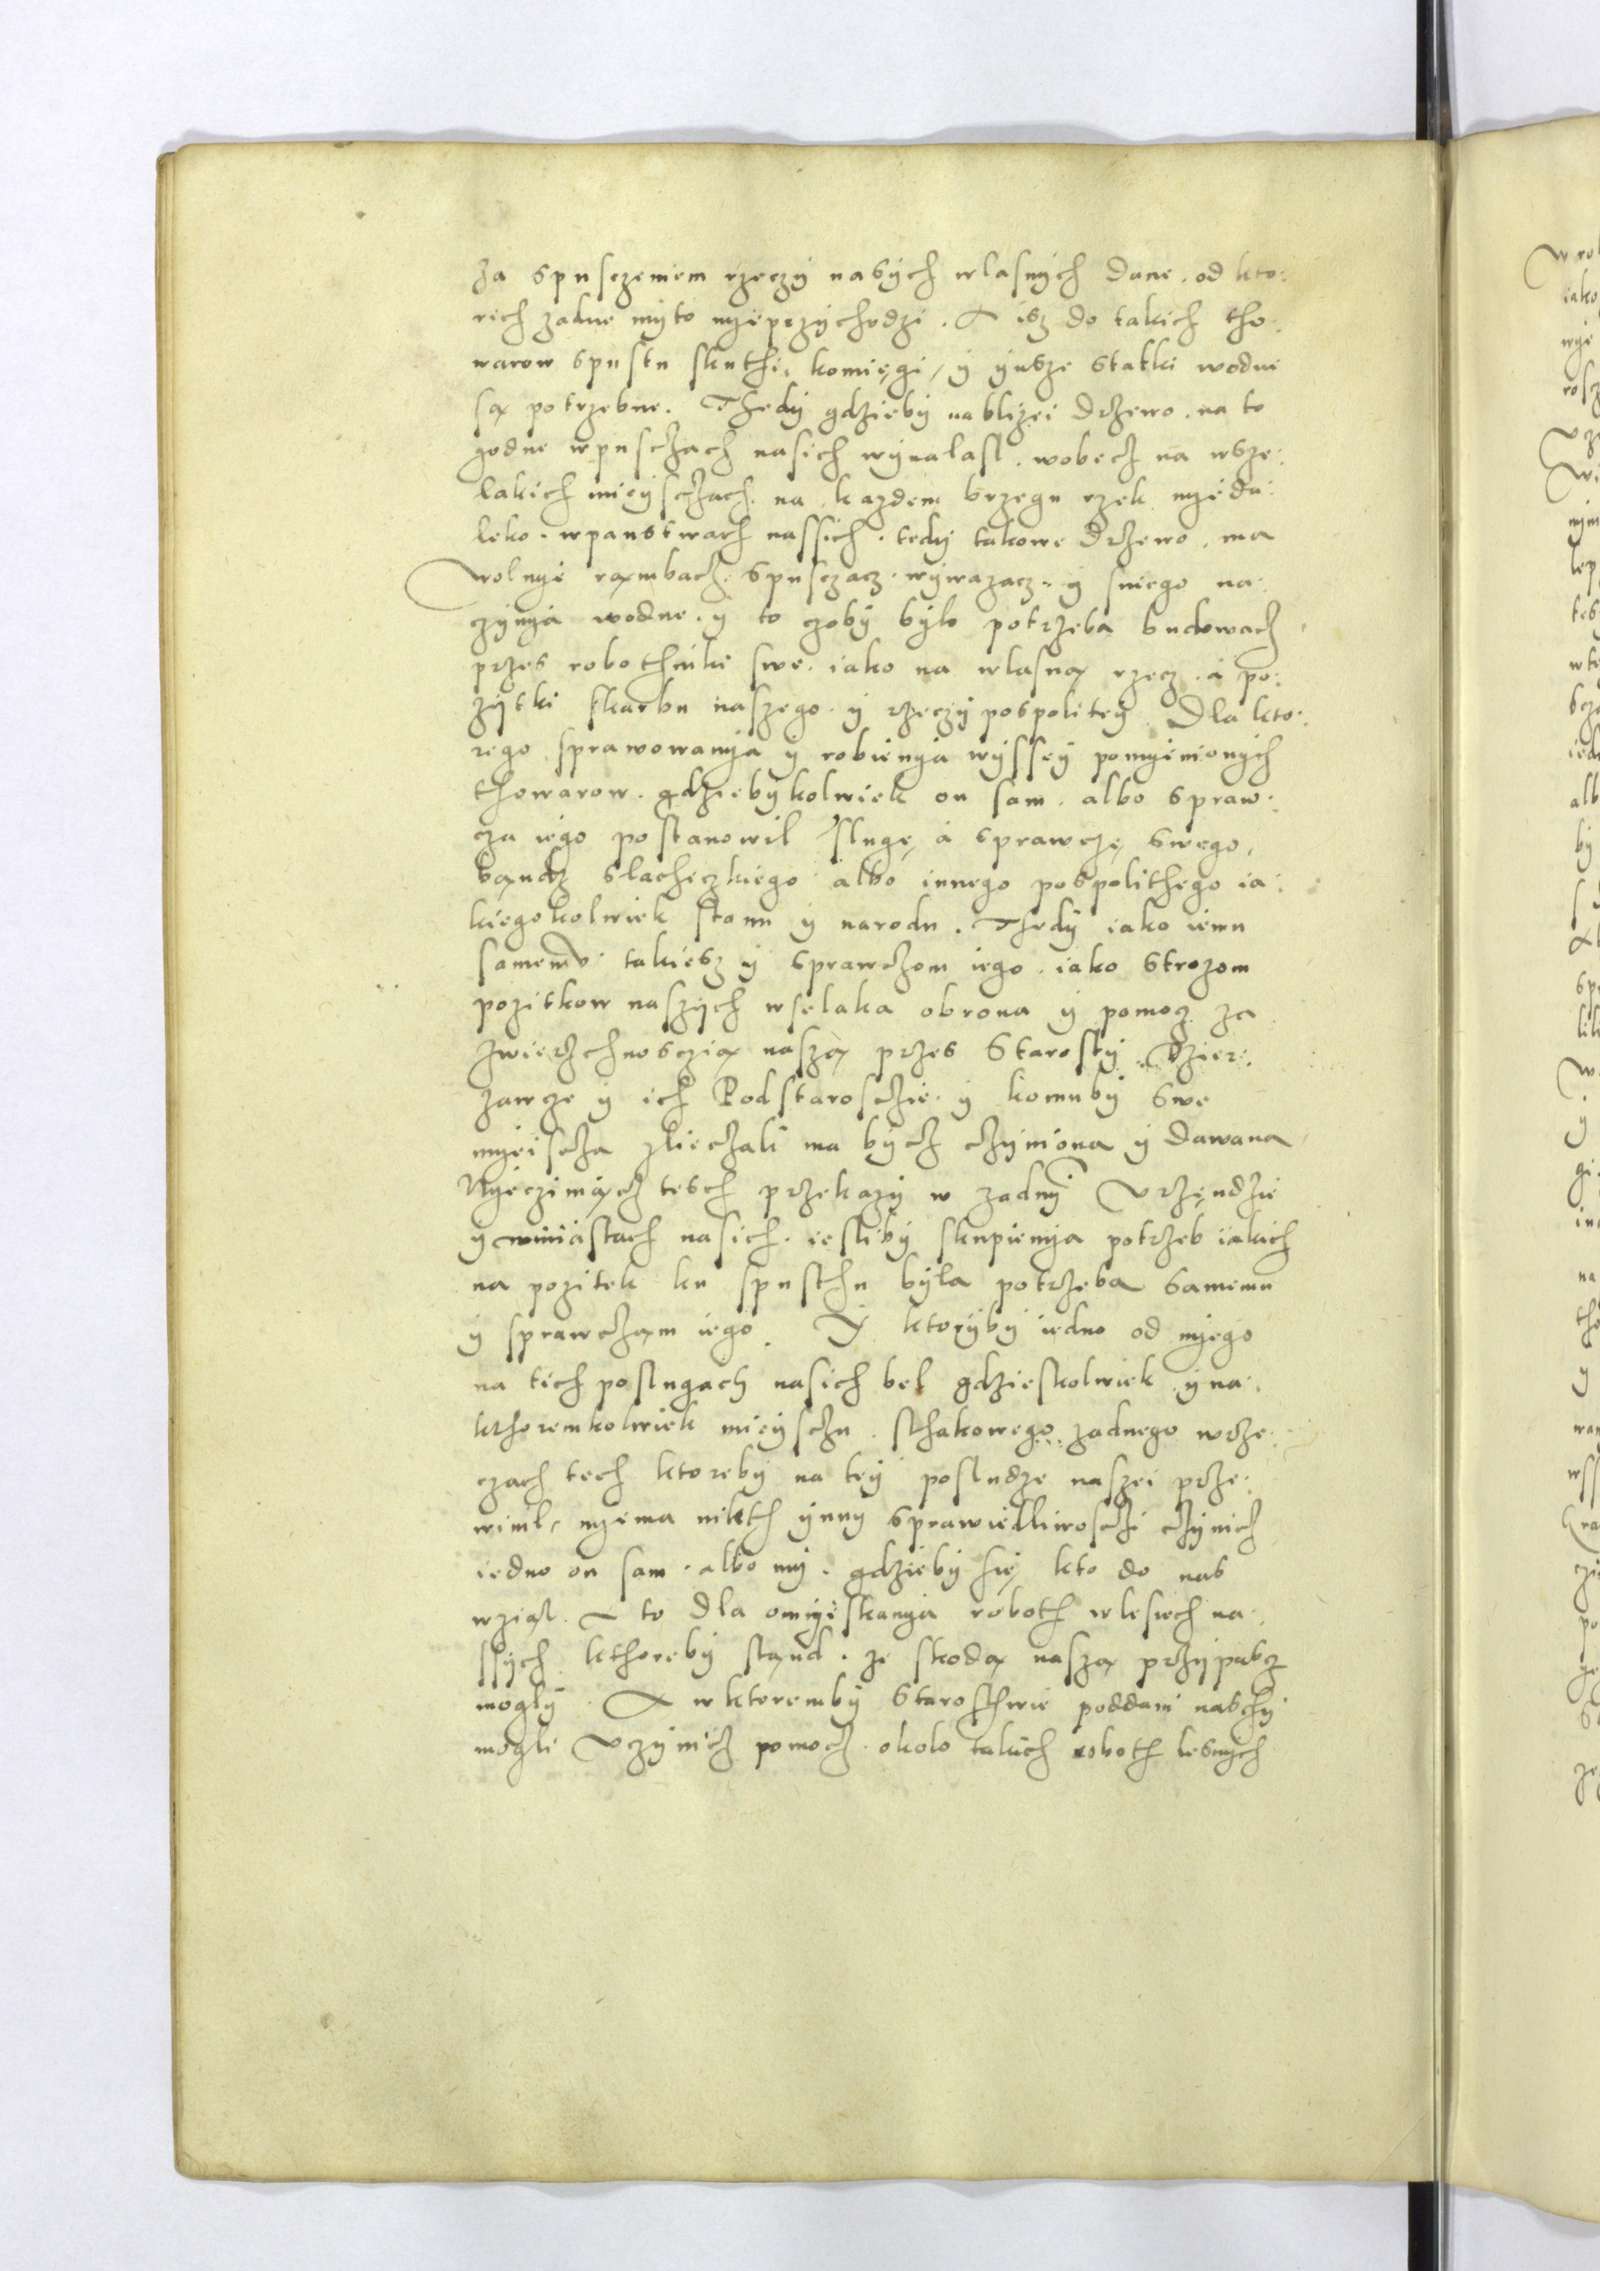 za spusczeniem rzeczÿ nasÿch wlasnÿch dane . od kto:
rich zadne mÿto nyeprzÿchodzi . A isz do takich tho:
warow spustu skuthi, komięgi, ÿ ÿnsze statki wodne
są potrzebne . Thedÿ gdziebÿ nablizei drzewo . na to
godne wpusczach nasich wÿnalasl . wobecz na wsze:
lakich mieÿsczach . na kazdem brzegu rzek nyeda:
leko . wpanstwach nassich . tedÿ takowe drzewo . ma
wolnye rąmbacz . spusczacz . wÿwazacz . ÿ sniego na:
czÿnya wodne . ÿ to czobÿ bÿlo potrzeba budowacz
przes robothniki swe . iako na wlasną rzecz . a po:
zÿtki skarbu naszego . ÿ rzeczÿ pospoliteÿ . Dla kto:
rego sprawowanya ÿ robienya wÿsseÿ pomyenionÿch
thowarow . gdziebÿkolwiek on sam . albo spraw:
cza iego postanowil slugę, a sprawczę swego,
bąndz slacheczkiego albo innego pospolithego ia:
kiegokolwiek stanu ÿ narodu . Thedÿ iako iemu
samemv takiesz ÿ sprawczom iego . iako strozom
pozitkow naszÿch wselaka obrona ÿ pomocz za
zwierzchnosczią naszą przes Starostÿ . Dzier:
zawcze ÿ ich Podstaroscie . ÿ komubÿ swe
myeiscza zlieczali ma bÿcz czÿniona ÿ dawana
Nyeczimącz tesch przekazÿ w zadnÿ vrzęndzie
ÿ wmiastach nasich . ieslibÿ skupienya potrzeb iakich
na pozitek ku spusthu bÿla potrzeba samemu
ÿ sprawcząm iego . Y ktorÿbÿ iedno od nyego
na tich poslugach nasich bel gdzieskolwiek . ÿ na:
kthoremkolwiek mieÿsczu . sthakowego zadnego wrze:
czach tech ktorebÿ na teÿ posludze naszei prze:
winil, nyema nikth ÿnnÿ sprawiedliwosczi czÿnicz
iedno on sam . albo mÿ . gdziebÿ się kto do nas
wziąl . A to dla omyeskanya roboth wlesiech na:
ssÿch kthorebÿ stąnd . ze skodą naszą przÿpascz
moglÿ . A wktorembÿ Starosthwie poddani naschÿ
mogli vczÿnicz pomocz . okolo takich roboth lesnÿch